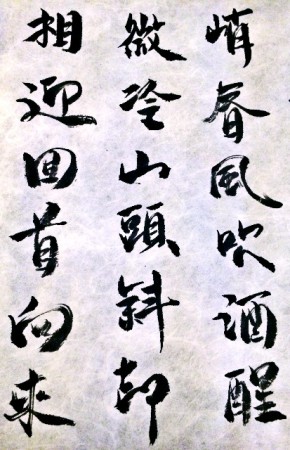 峭春風吹酒醒
微冷山頭斜却
相迎回首向來